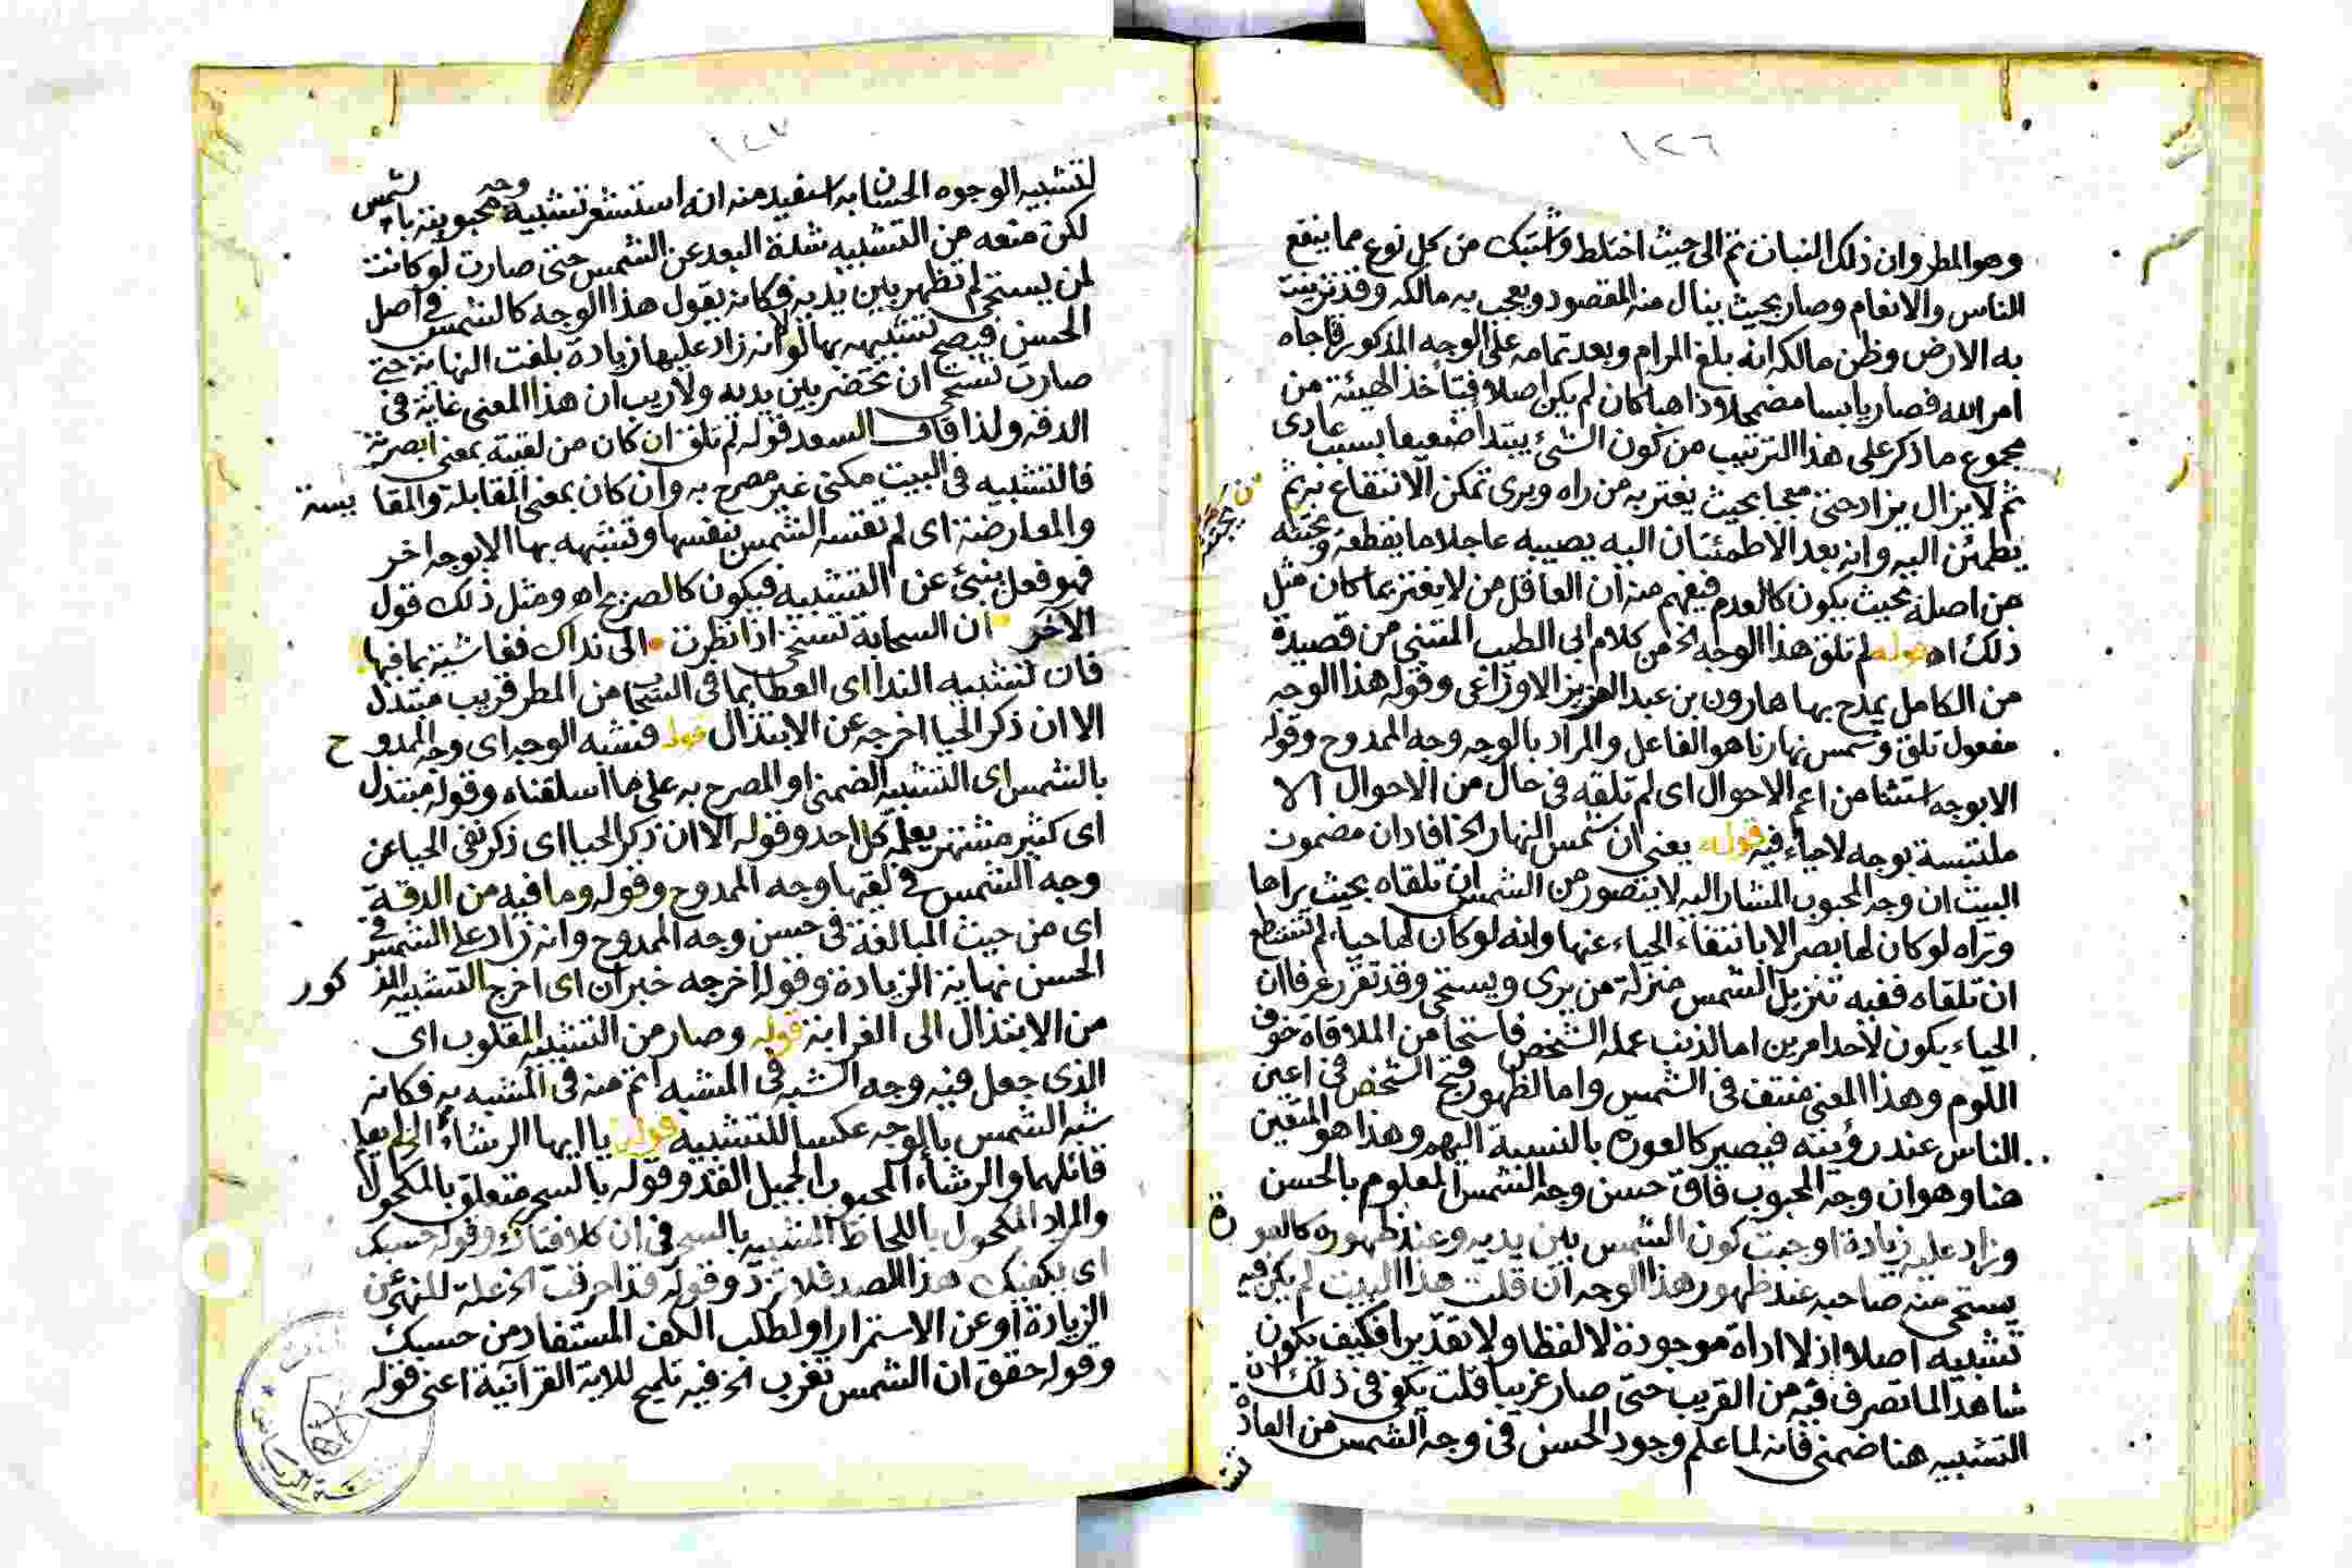 ١٢٦
وهو المطر وان ذلك النبات تم الى حيث اختلط واشتبك من كل نوع مما ينتفع
الناس والانعام وصار بحيث ينال منه المقصود ويعجب به مالكه وقد تزينت
به الارض وظن مالكه انه بلغ المرام وبعد تمامه على الوجه المذكور فاجاه
امر الله فصار يابسا مضمحلا وذاهبا كان لم يكن اصلا فيتأخذ الهيئة من
مجموع ما ذكر على هذا الترتيب من كون الشئ يبتدا ضعيفا بسبب عادى
ثم لا يزال يزاد حتى معجبا بحيث يغتر به من راه ويرى تمكن الانتفاع به ثم
يطمئن اليه وانه بعد الاطمئنان اليه يصيبه عاجلا ما يقطعه ويجتثه
من اصله بحيث يكون كالعدم فيفهم منه ان العاقل من لا يغتر بما كان مثل
ذلك اه قوله لم تلق هذا الوجه الخ من كلام ابى الطيب المتنبى من قصيدة
من الكامل يمدح بها هارون بن عبد العزيز الاوراغى وقوله هذا الوجه
مفعول تلق وشمس نهارنا هو الفاعل والمراد بالوجه وجه الممدوح وقوله
الا بوجه استثنا من اعم الاحوال اى لم تلقه فى حال من الاحوال الا
ملتبسة بوجه لا حياء فيه قوله يعنى ان شمس النهار الخ افاد ان مضمون
البيت ان وجه المحبوب المشار اليه لا يتصور من الشمس ان تلقاه بحيث يراها
وتراه لو كان لها بصر الا بانتفاء الحياء عنها وانه لو كان لها حياء لم تستطع
ان تلقاه ففيه تنزيل الشمس منزلة من يرى ويستحى وقد تقرر عرفا ان
الحياء يكون لاحد امرين اما لذنب عمله الشخص فاستحا من الملاقاة خوف
اللوم وهذا المعنى منتف فى الشمس واما لظهور قبح الشخص فى اعين
الناس عند رؤيته فيصير كالعورة بالنسبة اليهم وهذا هو المتعين
هنا وهو ان وجه المحبوب فاق حسن وجه الشمس المعلوم بالحسن
وزاد عليه زيادة اوجبت كون الشمس بين يديه وعند ظهوره كالعورة
يستحى منه صاحبه عند ظهور هذا الوجه ان قلت هذا البيت لم يكن فيه
تشبيه اصلا اذ لا اداة موجودة لا لفظا ولا تقديرا فكيف يكون
شاهدا لما تصرف فيه من القريب حتى صار غريبا قلت يكفى فى ذلك ان
التشبيه هنا ضمنى فانه لما علم وجود الحسن فى وجه الشمس من العادة
لتشبيه الوجوه الحسان به استفيد منه انه استشعر تشبيه وجه محبوبته بالشمس
لكن منعه من التشبيه شدة البعد عن الشمس حتى صارت لو كانت
لمن يستحى لم تظهر بين يديه فكانه يقول هذا الوجه كالشمس فى اصل
الحسن فيصح تشبيهه بها لولا انه زاد عليها زيادة بلغت النهاية حتى
صارت تستحى ان تحضر بين يديه ولا ريب ان هذا المعنى غاية فى
الدقه ولذا قال السعد قوله لم تلق ان كان من لقيته بمعنى ابصرته
فالتشبيه فى البيت مكنى غير مصرح به وان كان بمعنى المقابلة والمقايسة
والمعارضة اى لم تقسه الشمس بنفسها وتشبهه بها الا بوجه اخر
فهو فعل ينبئ عن التشبيه فيكون كالصريح اه ومثل ذلك قول
الآخر ان السحابة تستحى اذا نظرت الى نداك فقاسته بما فيها
فان تشبيه الندا اى العطا بما فى السحاب من المطر قريب مبتذل
الا ان ذكر الحيا اخرجه عن الابتذال قوله فتشبه الوجه اى وجه الممدوح
بالشمس اى التشبيه الضمنى او المصرح به على ما اسلفناه وقوله مبتذل
اى كثير مشتهر يعلمه كل احد وقوله الا ان ذكر الحيا اى ذكر نفى الحيا عن
وجه الشمس فى لقيها وجه الممدوح وقوله وما فيه من الدقة
اى من حيث المبالغة فى حسن وجه الممدوح وانه زاد على الشمس فى
الحسن نهاية الزيادة وقوله اخرجه خبر ان اى اخرج التشبيه المذكور
من الابتذال الى الغرابة قوله وصار من التشبيه المقلوب اى
الذى جعل فيه وجه الشبه فى المشبه اتم منه فى المشبه به فكانه
شبه الشمس بالوجه عكسا للتشبيه قوله يا ايها الرشاء الخ لم يعلم
قائلها والرشاء المحبوب الجميل القد وقوله بالسحر متعلق بالمكحول
والمراد المكحول باللحاظ الشبيه بالسحر فى ان كلا فتاك وقوله حسبك
اى يكفيك هذا الصد فلا تزد وقوله قد احرقت الخ علة للنهى عن
الزيادة او عن الاستمرار او لطلب الكف المستفاد من حسبك
وقوله حقق ان الشمس تغرب الخ فيه تلميح للاية القرآنية اعنى قوله